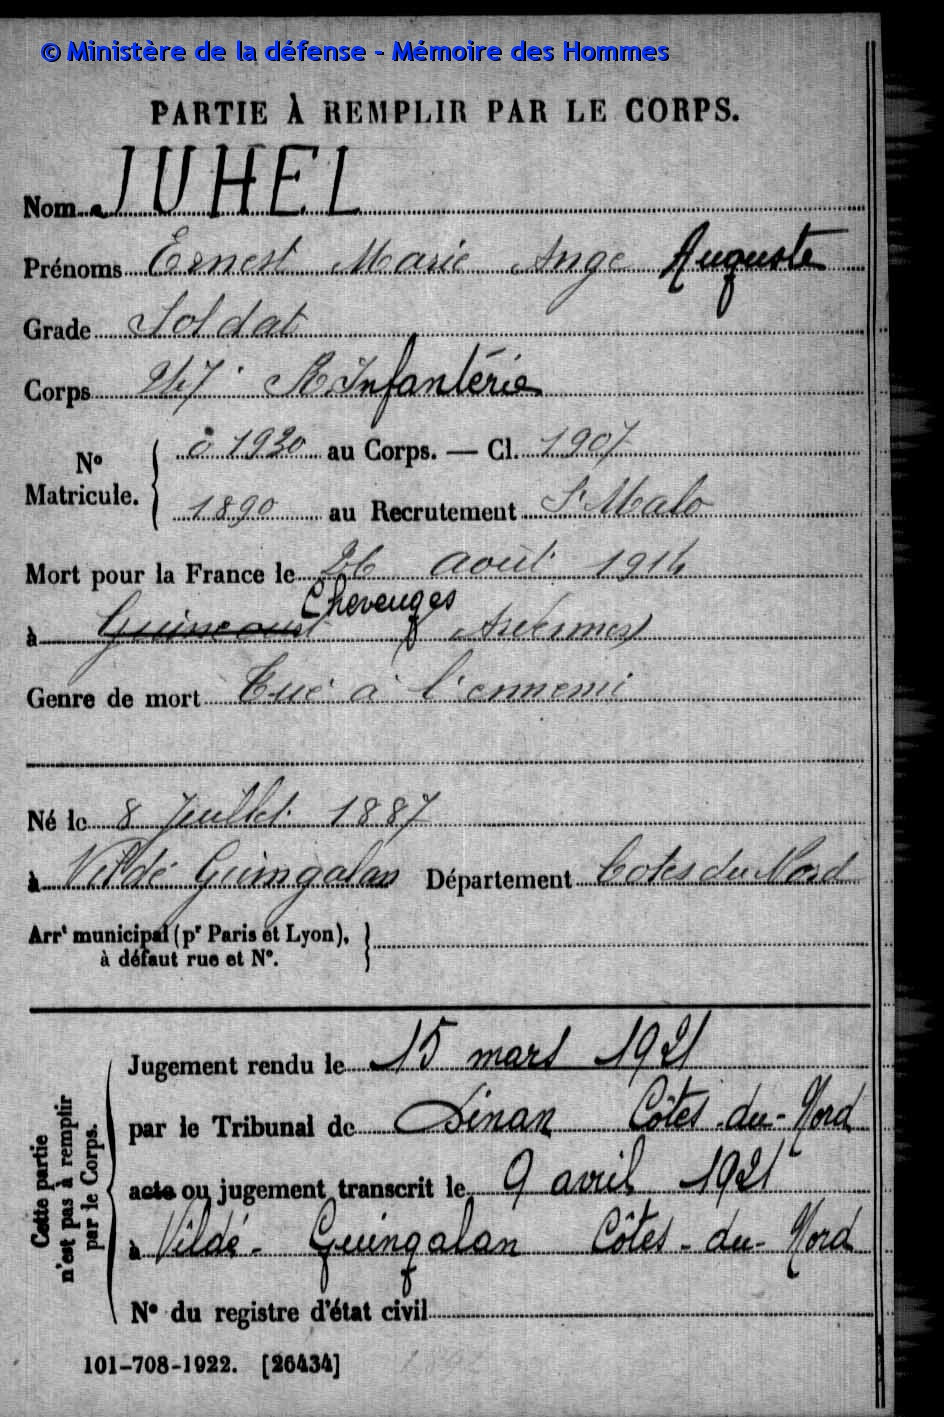 © Ministère de la défense - Mémoire des Hommes
PARTIE À REMPLIR PAR LE CORPS.
Nom JUHEL
Prénoms Ernest Marie Ange Auguste
Grade Soldat
Corps 247e R. Infanterie
No Matricule. { 01930 au Corps. — Cl. 1907
1890 au Recrutement St Malo
Mort pour la France le 26 août 1914
à Guincourt Chevenges Ardennes
Genre de mort Tué à l'ennemi
Né le 8 Juillet 1887
à Vildé Guingalan Département Cotes du Nord
Arrt municipal (pr Paris et Lyon), }
à défaut rue et No.
Cette partie n'est pas à remplir par le Corps.
Jugement rendu le 15 mars 1921
par le Tribunal de Dinan Côtes-du-Nord
acte ou jugement transcrit le 9 avril 1921
à Vildé-Guingalan Côtes-du-Nord
No du registre d'état civil
101-708-1922. [26434]